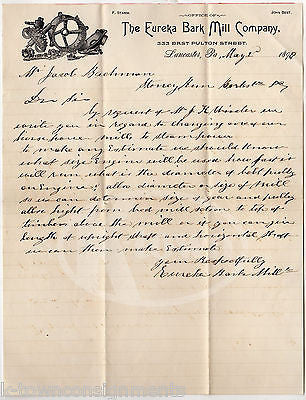 F. STAMM.
OFFICE OF
JOHN BEST.
THE EUREKA BARK MILL COMPANY,
333 EAST FULTON STREET.
Lancaster, Pa, May 2 1890
Mr Jacob Bachman
Honey Run Pa
Dear Sir
by request of Mr J K
write you in regard to changing over own
horse power mills to steam power
to make any Estimate we should know
what size Engine will be used how fast it
will run what is the diameter of belt pully
on Engine also diameter or size of Mill
so we can determon size of gear and pully
allso height from bed mill to top of
timbers above the mill or if you can give
length of upright shaft and horizontal Shaft
we can then make Estimate
yours Respectfully
Eureka Bark Mill Co
k-townconsignments